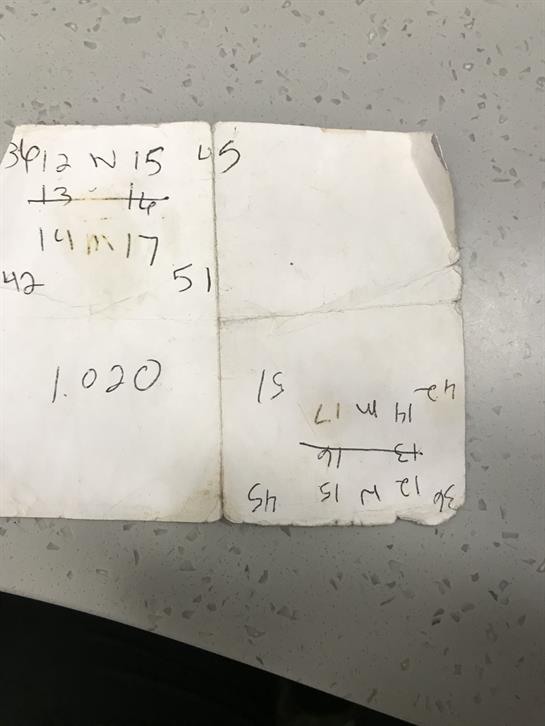 36 12 N 15 45
13 16
14 m 17
42 51
1.020
36 12 N 15 45
13 16
14 m 17 42
51